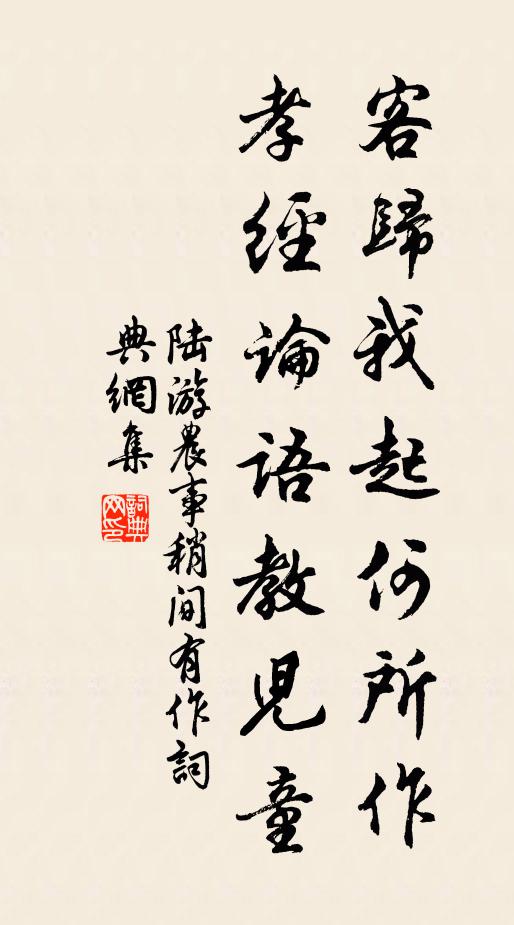 客歸我起何所作
孝經論語教兒童
陸游農事稍間有作詞
典網集
詞典網印